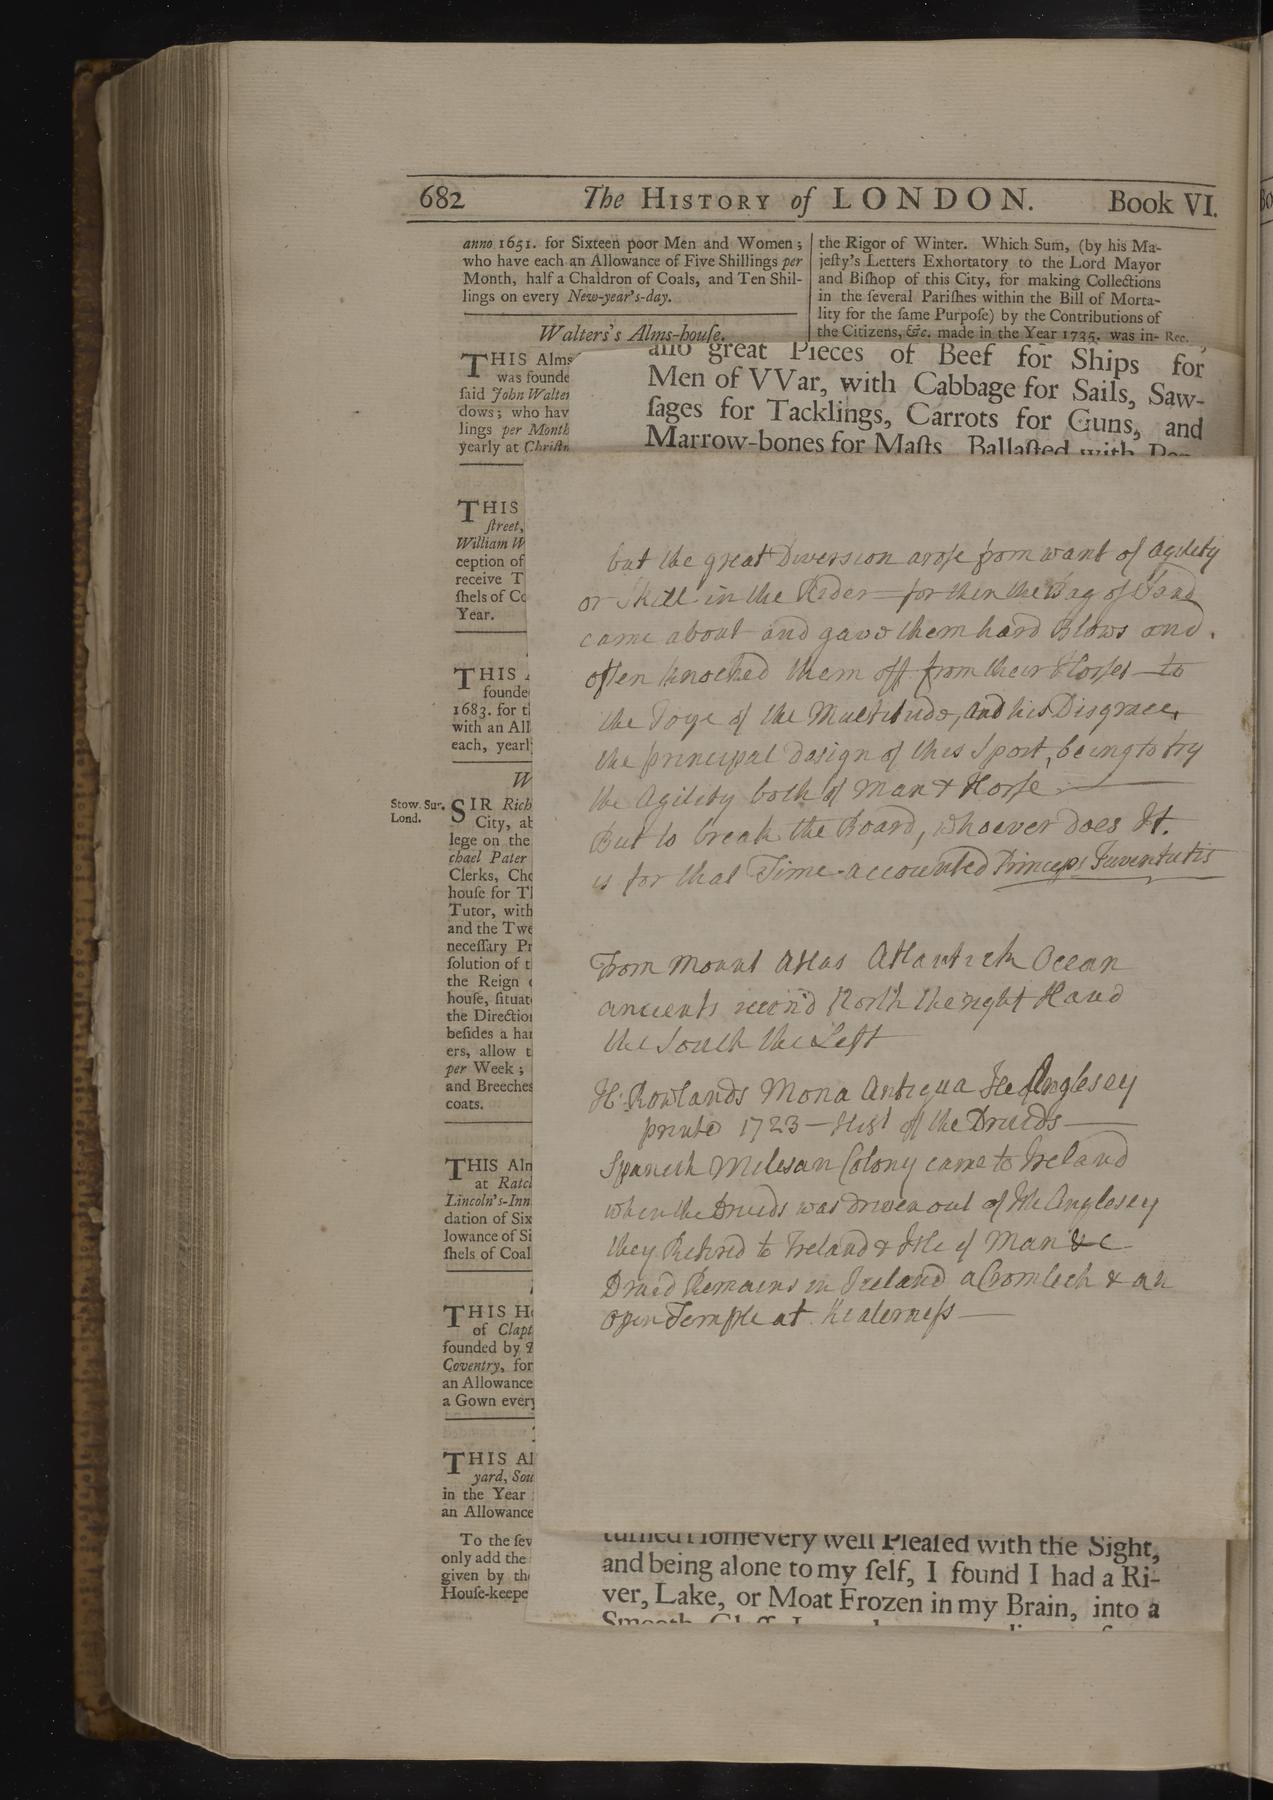 682 The HISTORY of LONDON. Book VI.
anno 1651. for Sixteen poor Men and Women;
who have each an Allowance of Five Shillings per
Month, half a Chaldron of Coals, and Ten Shil-
lings on every New-year's-day.
Walters's Alms-houſe.
THIS Alms
was founde
ſaid John Walter
dows; who hav
lings per Month
yearly at Chriſtm
THIS
ſtreet,
William W
ception of
receive T
ſhels of Co
Year.
THIS A
founde
1683. for t
with an All
each, yearl
W
Stow. Sur.
Lond.
SIR Rich
City, ab
lege on the
chael Pater
Clerks, Cho
houſe for Th
Tutor, with
and the Twe
neceſſary Pr
ſolution of t
the Reign
houſe, ſituat
the Direction
beſides a han
ers, allow t
per Week;
and Breeches
coats.
THIS Alm
at Ratcl
Lincoln's-Inn
dation of Six
lowance of Si
ſhels of Coal
THIS Ho
of Clapt
founded by
Coventry, for
an Allowance
a Gown every
THIS Al
yard, Sou
in the Year
an Allowance
To the ſev
only add the
given by the
Houſe-keepe
the Rigor of Winter. Which Sum, (by his Ma-
jeſty's Letters Exhortatory to the Lord Mayor
and Biſhop of this City, for making Collections
in the ſeveral Pariſhes within the Bill of Morta-
lity for the ſame Purpoſe) by the Contributions of
the Citizens, &c. made in the Year 1735. was in- Rec.
and great Pieces of Beef for Ships for
Men of VVar, with Cabbage for Sails, Saw-
ſages for Tacklings, Carrots for Guns, and
Marrow-bones for Maſts. Ballaſted with
but the great Diversion aroſe from want of Agility
or Skill in the Rider = for then the Bag of Sand
came about and gave them hard Blows and
often knocked them off from their Horſes — to
the Joye of the Multitude, and his Disgrace,
the principal design of this Sport, being to try
the Agility both of Man & Horſe —
But to break the Board, whoever does It.
is for that Time accounted Princeps Juventutis
From Mount Atlas Atlantick Ocean
ancients recon'd North the right Hand
the South the Left
H. Rowlands Mona Antiqua Ile Anglesey
printed 1723 — Hist of the Druids —
Spanish Milesan Colony came to Ireland
when the Druids was driven out of Ile Anglesey
they Retired to Ireland & Isle of Man &c
Druid Remains in Ireland a Cromlech & an
open Temple at
turned Home very well Pleaſed with the Sight,
and being alone to my ſelf, I found I had a Ri-
ver, Lake, or Moat Frozen in my Brain, into a
Smooth